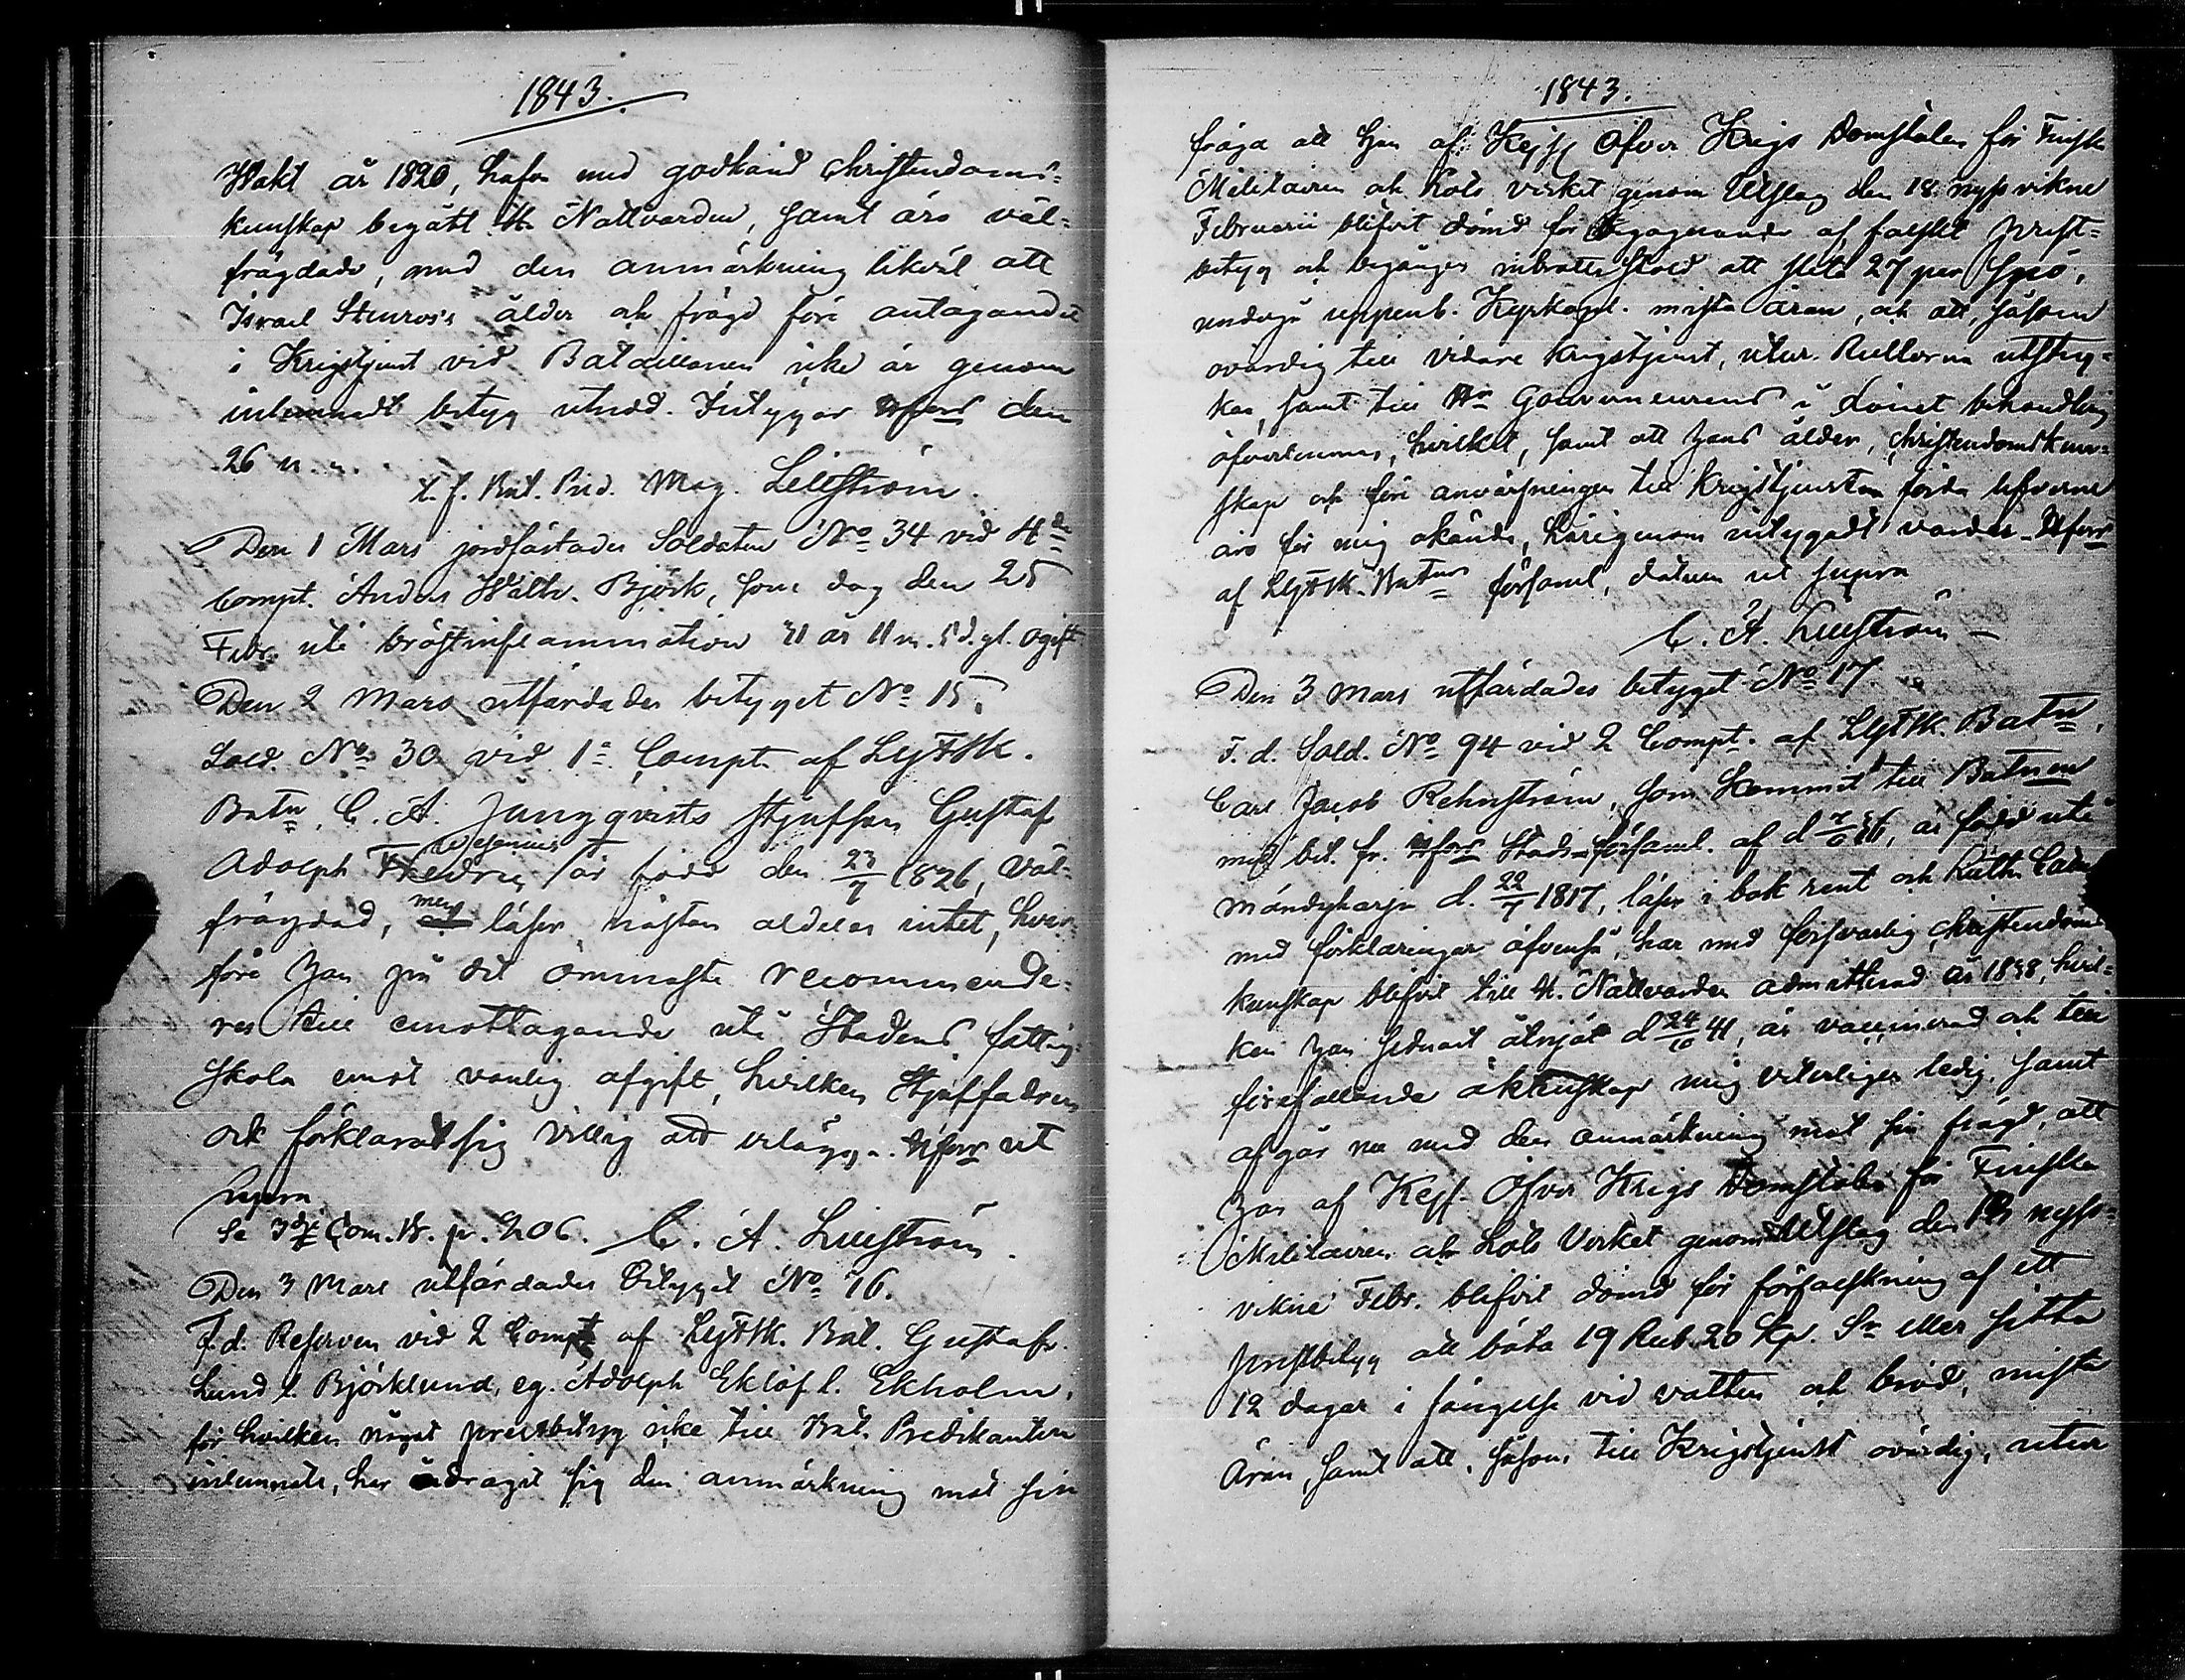 1843.
Wakt år 1820, hafva med godkänd Christendoms-
kunskap begått H. Nattvarden, samt äro väl-
frägdade, med den anmärkning likväl att
Israel Stenros's ålder och frägd före antagandet
i Krigstjenst vid Bataillonen icke är genom
inlemnadt betyg utredd. Intygar Hfors den
26
t. f. Bat. Pred. Mag. Lillström.
Den 1 Mars jordfästades Soldaten No 34 vid 4de
Compt. Anders Wilh. Björk, som dog den 25
Febr. uti bröstinflammation 21 år 11 m. 5 d. gl. ogift
Den 2 Mars utfärdades betyget No 15.
Sold. No 30 vid 1a Compt. af LgFSk.
Batn, C. A. Jungqvists styfson Gustaf
Adolph är född den 23/7 1826, väl-
frägdad, men läser nästan alldeles intet, hvar-
före han på det ömmaste recommende-
res till emottagande uti Stadens fattig
skola emot vanlig afgift, hvilken Styffadren
ock förklarat sig villig att erlägga. Hfors ut
supra
Se 3dje Com. B. p. 206. C. A. Lillström.
Den 3 Mars utfärdades Betyget No 16.
F. d. Reserven vid 2 Compt af LgFSk. Bat. Gustaf
Lund l. Björklund, eg. Adolph Eklöf l. Ekholm,
för hvilken något prestbetyg icke till Bat. Predikanten
inlemnats, har ådragit sig den anmärkning mot sin
1843.
frägd att han af Kejs Öfver Krigs Domstolen för Finska
Militairen och Lots verket genom Utslag den 18 nyss vikne
Februarii blifvit dömd för begagnande af falskt prest-
betyg och begången inbrotts stöld att slita 27 par spö,
undergå uppenb. Kyrkopl. mista äran, och att, såsom
ovärdig till vidare krigstjenst, utur Rullorna utstry-
kas, samt till Hr Gouverneurens i länet behandling
öfverlemnas, hvilket, samt att hans ålder, christendomskun-
skap och före anvärfningen till Krigstjensten förda lefverne
äro för mig okände, härigenom intygadt varder. Hfors
af LgFSk. Batns församl., datum ut supra
C. A. Lillström
Den 3 Mars utfärdades betyget No 17
F. d. Sold. No 94 vid 2 Compt. af LgFSk. Batn,
Carl Jacob Rehnström, som kommit till Batnen
med bet. fr. Hfors Stads-församl. af d 36, är född uti
Mändyharju d. 22/7 1817, läser i bok rent och Luth. Cat.
med förklaringar äfvenså, har med försvarlig christendoms
kunskap blifvit till H. Nattvarden admitterad år 1838, hvil-
ken han sednast åtnjöt d 24/10 41, är vaccinerad och till
förefallande äktenskap mig veterligen ledig, samt
afgår nu med den anmärkning mot sin frägd, att
han af Kejs. Öfver Krigs Domstolen för Finska
Militairen och Lots Verket genom Utslag den 18 nyss-
vikne Febr. blifvit dömd för förfalskning af ett
prestbetyg att böta 19 Rub. 20 Kp. Sr eller sitta
12 dagar i fängelse vid vatten och bröd, mista
Äran, samt att, såsom till Krigstjenst ovärdig, utur